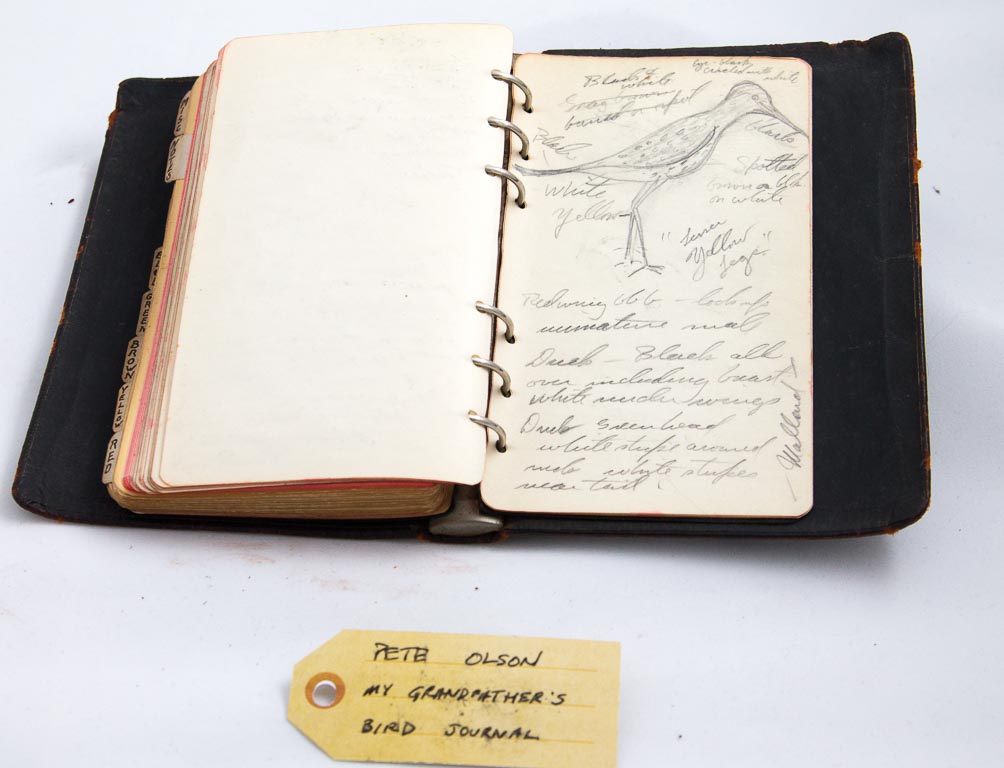 BLUE
GREEN
BROWN
YELLOW
RED
Eye - black
circled with white
Black &
white
Gray brown
banded on
Black
black
White
Yellow
Spotted
brown or blk
on white
"Lesser
Yellow
Legs"
Redwing blk b. - look up
immature male
Duck - Black all
over including breast
white under wings
Duck Green head
white stripe around
neck white stripes
near tail.
Mallard
PETE OLSON
MY GRANDFATHER'S
BIRD JOURNAL